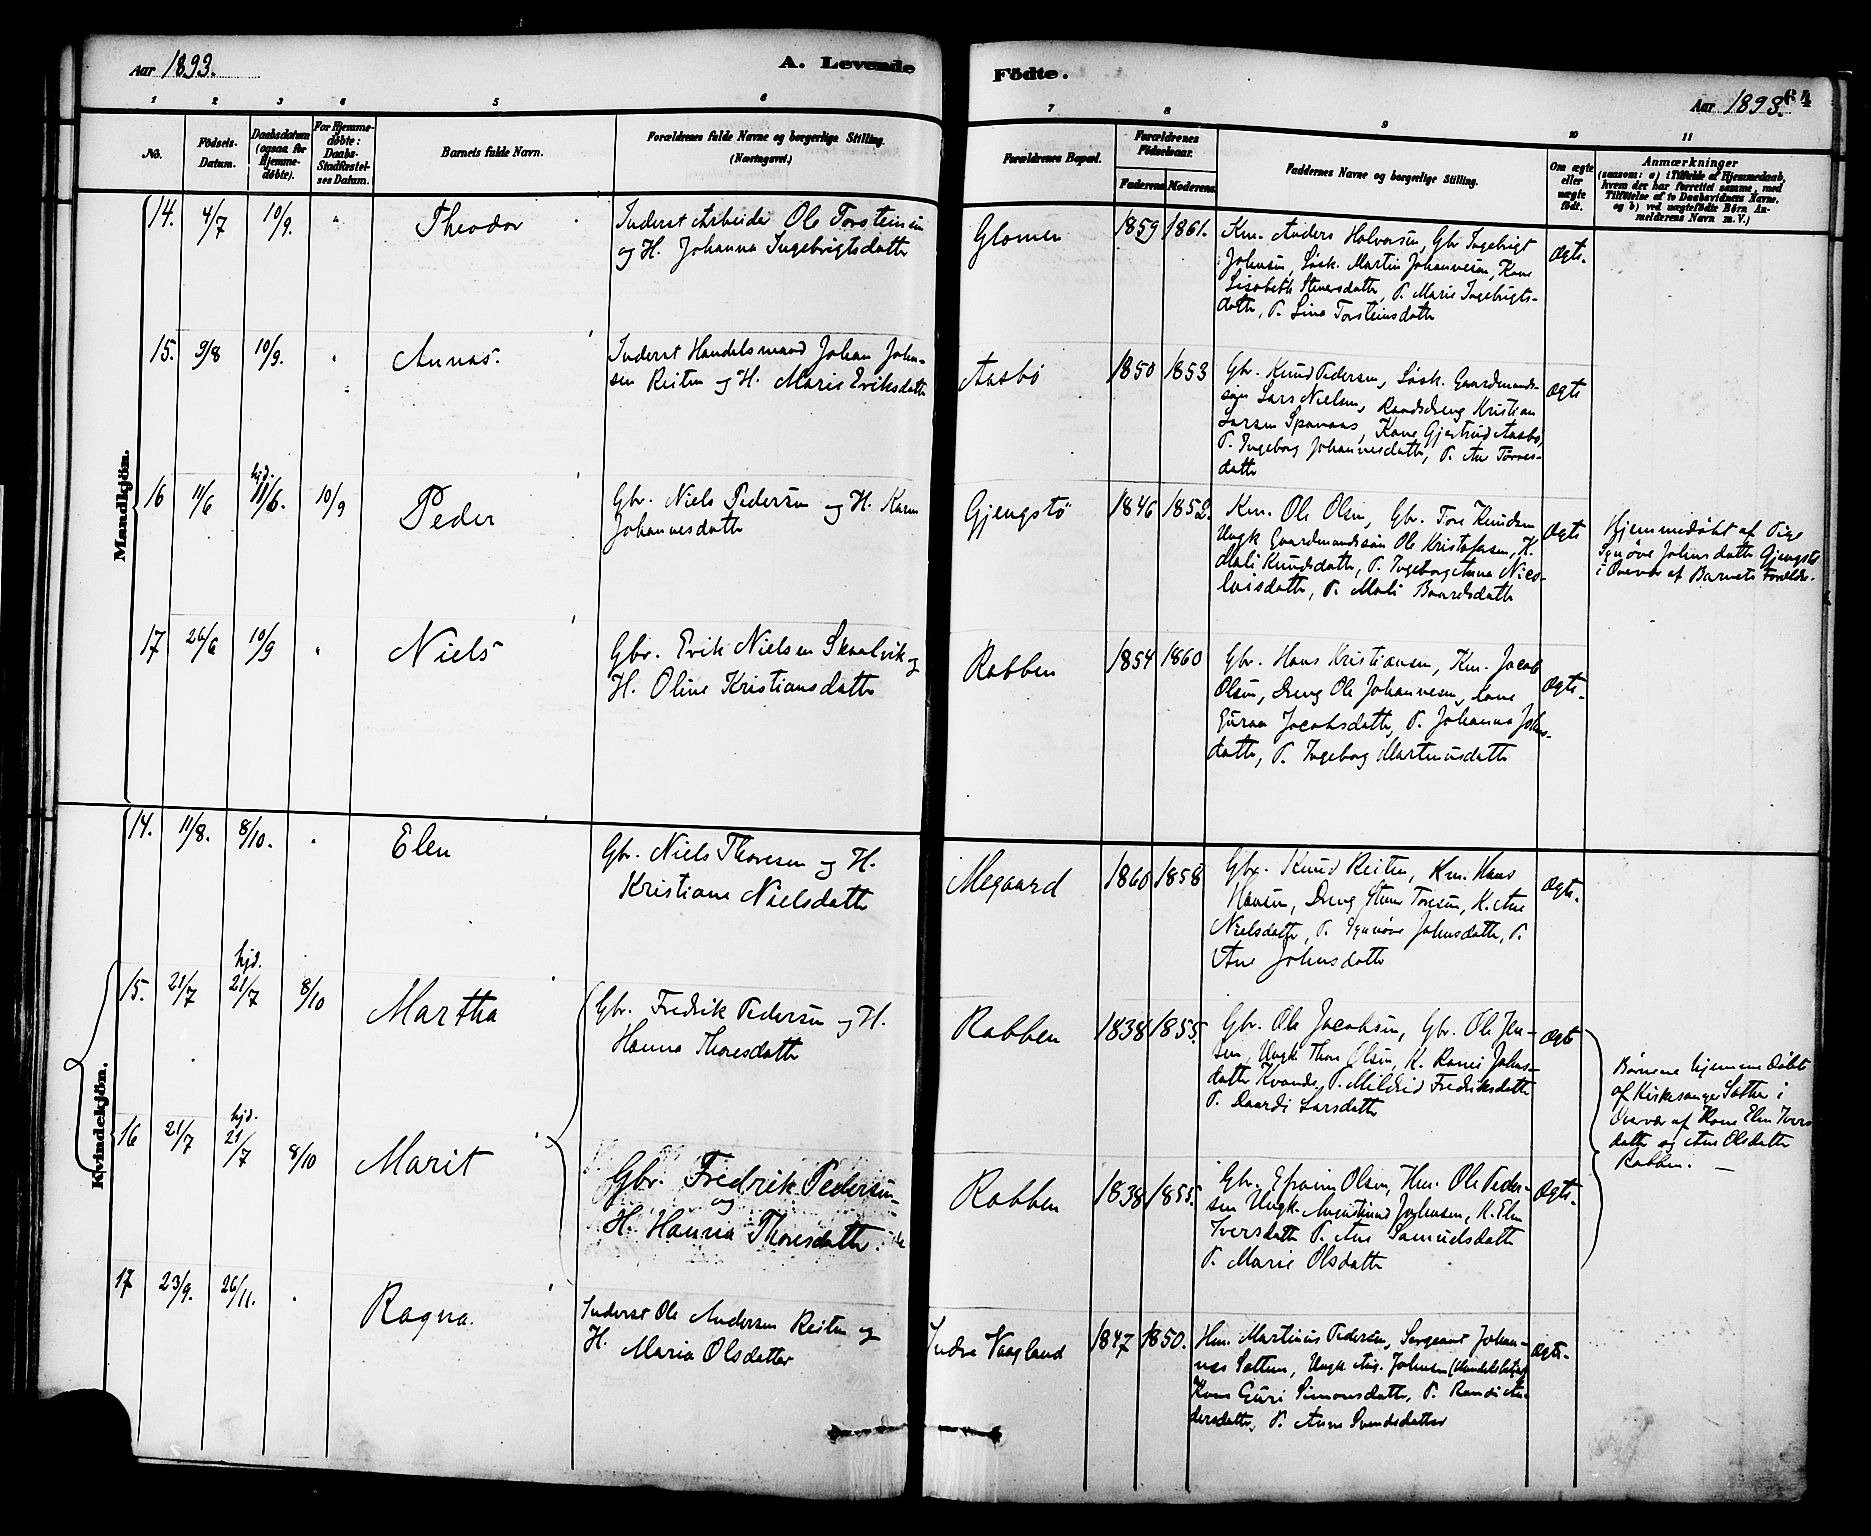 Aar 1893.
A. Levende
Födte.
Aar 1893.
64
1
2
3
4
5
6
7
8
9
10
11
No.
Födsels-
Datum.
Daabsdatum
(ogsaa for
Hjemme-
døbte).
For Hjemme-
døbte:
Daabs-
Stadfæstel-
ses Datum.
Barnets fulde Navn.
Forældrenes fulde Navne og borgerlige Stilling.
(Næringsvei.)
Forældrenes Bopæl.
Forældrenes
Födselsaar.
Faderens
Moderens
Faddernes Navne og borgerlige Stilling.
Om ægte
eller
uægte
födt.
Anmærkninger
(saasom: a) i Tilfælde af Hjemmedaab,
hvem der har forrettet samme, med
Tilföielse af to Daabsvidners Navne,
og b) ved uægtefödte Börn An-
melderens Navn m. V.)
Mandkjön.
14. 4/7 10/9. " Theodor
Inderst Arbeider Ole Torsteinsen
og H. Johanna Ingebrigtsdatter
Glomen 1859 1861.
Km. Anders Halvorsen, Gbr Ingebrigt
Johnsen, Løsk. Martin Johannesen, Kone
Lisabeth Steversdatter, P. Marie Ingebrigts-
datter, P. Sina Torsteinsdatter
Ægte.
15. 9/8 10/9. " Annas.
Inderst Handelsmand Johan John-
sen Reiten og H. Marie Eriksdatter
Aasbö 1850 1853
Gbr. Knud Pedersen, Løsk. Gaardmands-
søn Lars Nielsen, Kristian
Larsen Kone Gjertrud Aasbö,
P. Ingeborg Johannesdatter, P. Ane Tørres-
datter
Ægte
16 11/6 hjd. 11/6. 10/9 Peder
Gbr. Niels Pedersen og H. Karen
Johannesdatter
Gjengstö 1846 1852.
Km. Ole Olsen, Gbr. Tore Knudsen
Ungk Gaardmandssøn Ole Kristofersen, K.
Mali Knudsdatter, P. Ingeborg Anna Nico-
laisdatter, P. Mali Baardsdatter
Ægte
Hjemmedøbt af Pige
Synøve Johnsdatter Gjengstö
i Overvær af Barnets Forældre.
17 26/6 10/9 " Niels
Gbr. Erik Nielsen Skaalvik og
H. Oline Kristiansdatter
Rabben 1854 1860
Gbr. Hans Kristiansen, Km. Jacob
Olsen, Dreng Ole Johannesen, Kone
Guraa Jacobsdatter, P. Johanna Johns-
datter, P. Ingeborg Martinusdatter
Ægte.
Kvindekjön.
14. 11/8. 8/10. " Elen
Gbr. Niels Thoresen og H.
Kristiane Nielsdatter
Megaard 1860 1858
Gbr. Knud Reiten, Km. Hans
Hansen, Dreng Sten Toresen, K. Ane
Nielsdatter, P. Synnøve Johnsdatter, P.
Ane Johnsdatter
Ægte.
15. 21/7 hjd. 21/7 8/10 Martha
Gbr. Fredrik Pedersen og H.
Hanna Thoresdatter
Rabben 1838 1855.
Gbr. Ole Jacobsen, Gbr. Ole Jen-
sen, Ungk Thore Olsen, K. Johns-
datter Kvande, P. Mildrid Fredriksdatter
P. Larsdatter
Ægte
Børnene hjemmedøbt
af Kirkesanger Sæther i
Overvær af Kone Elen Ivers
datter og Ane Olsdatter
Rabben. —
16 21/7 hjd. 21/7 8/10 Marit
Gbr. Fredrik Pedersen
og
H. Hanna Thoresdatter.
Rabben 1838 1855.
Gbr. Efraim Olsen, Hm. Ole Peder-
sen Ungk. Johnsen, K. Elen
Iversdatter P. Ane Samuelsdatter
P. Marie Olsdatter
Ægte.
17 23/9. 26/11. " Ragna.
Inderst Ole Andersen Reiten og
H. Maria Olsdatter
Indre Vaagland 1847 1850.
Hm. Martinus Pedersen, Sergeant Johan-
nes Sættem, Ungk Aug. Johnsen (Handelsbetjent)
Kone Guri Simonsdatter, P. Randi An-
dersdatter, P. Anne Svendsdatter
Ægte.